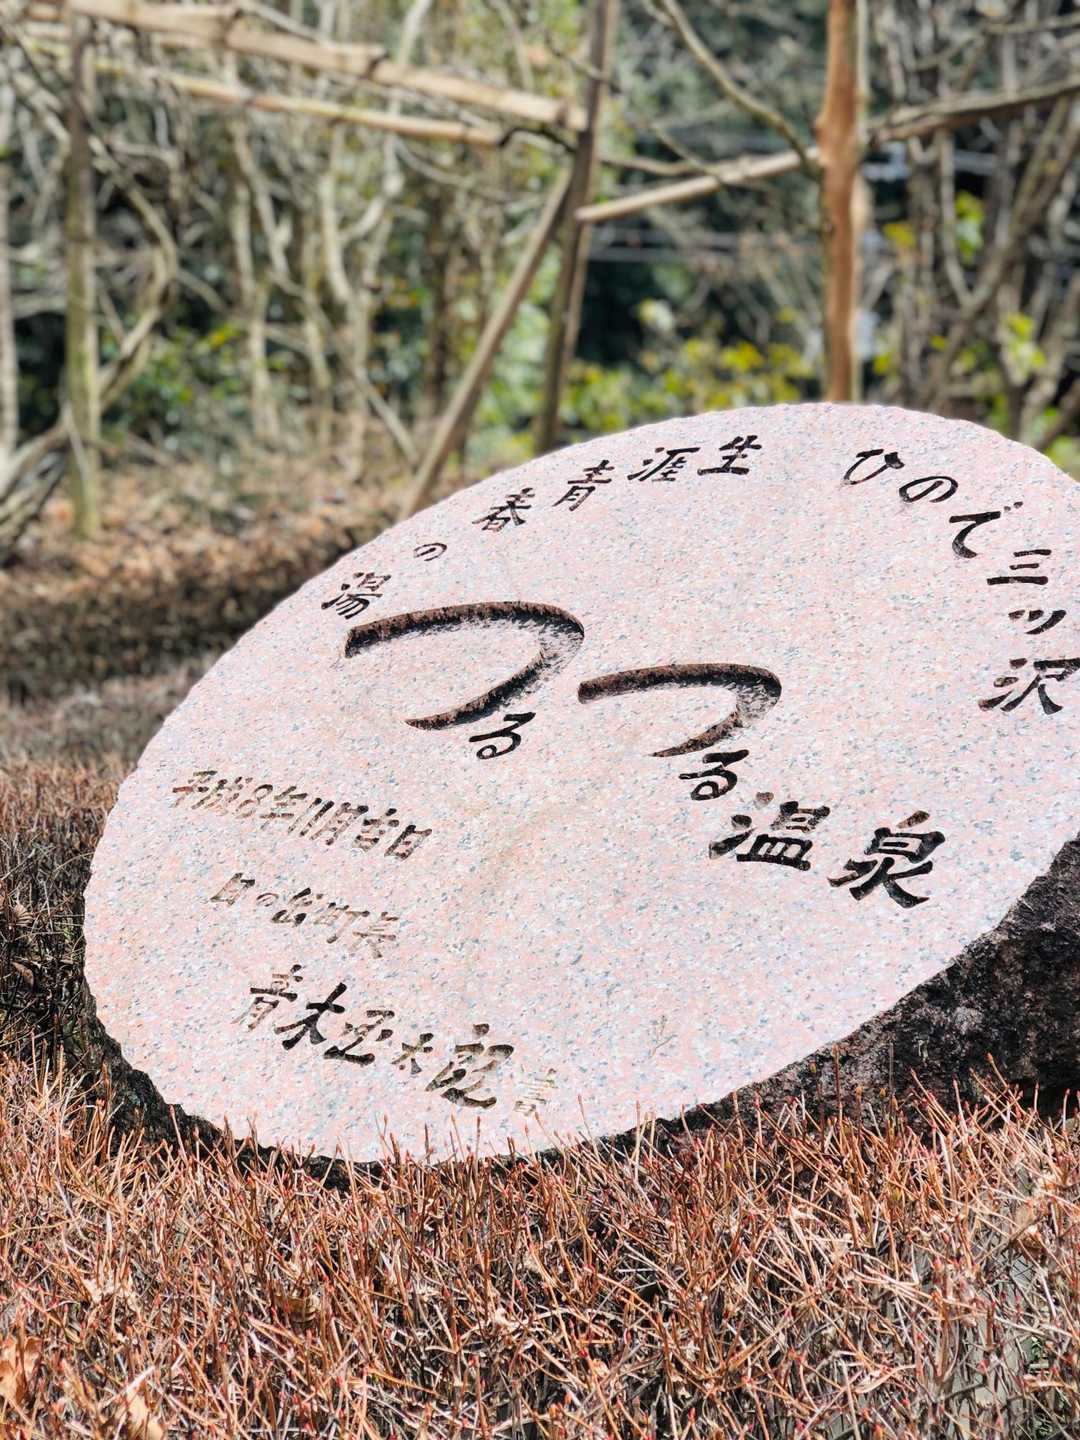 ひので三ツ沢
つるつる温泉
生涯青春の湯
平成8年11月吉日
日の出町長
青木國太郎書